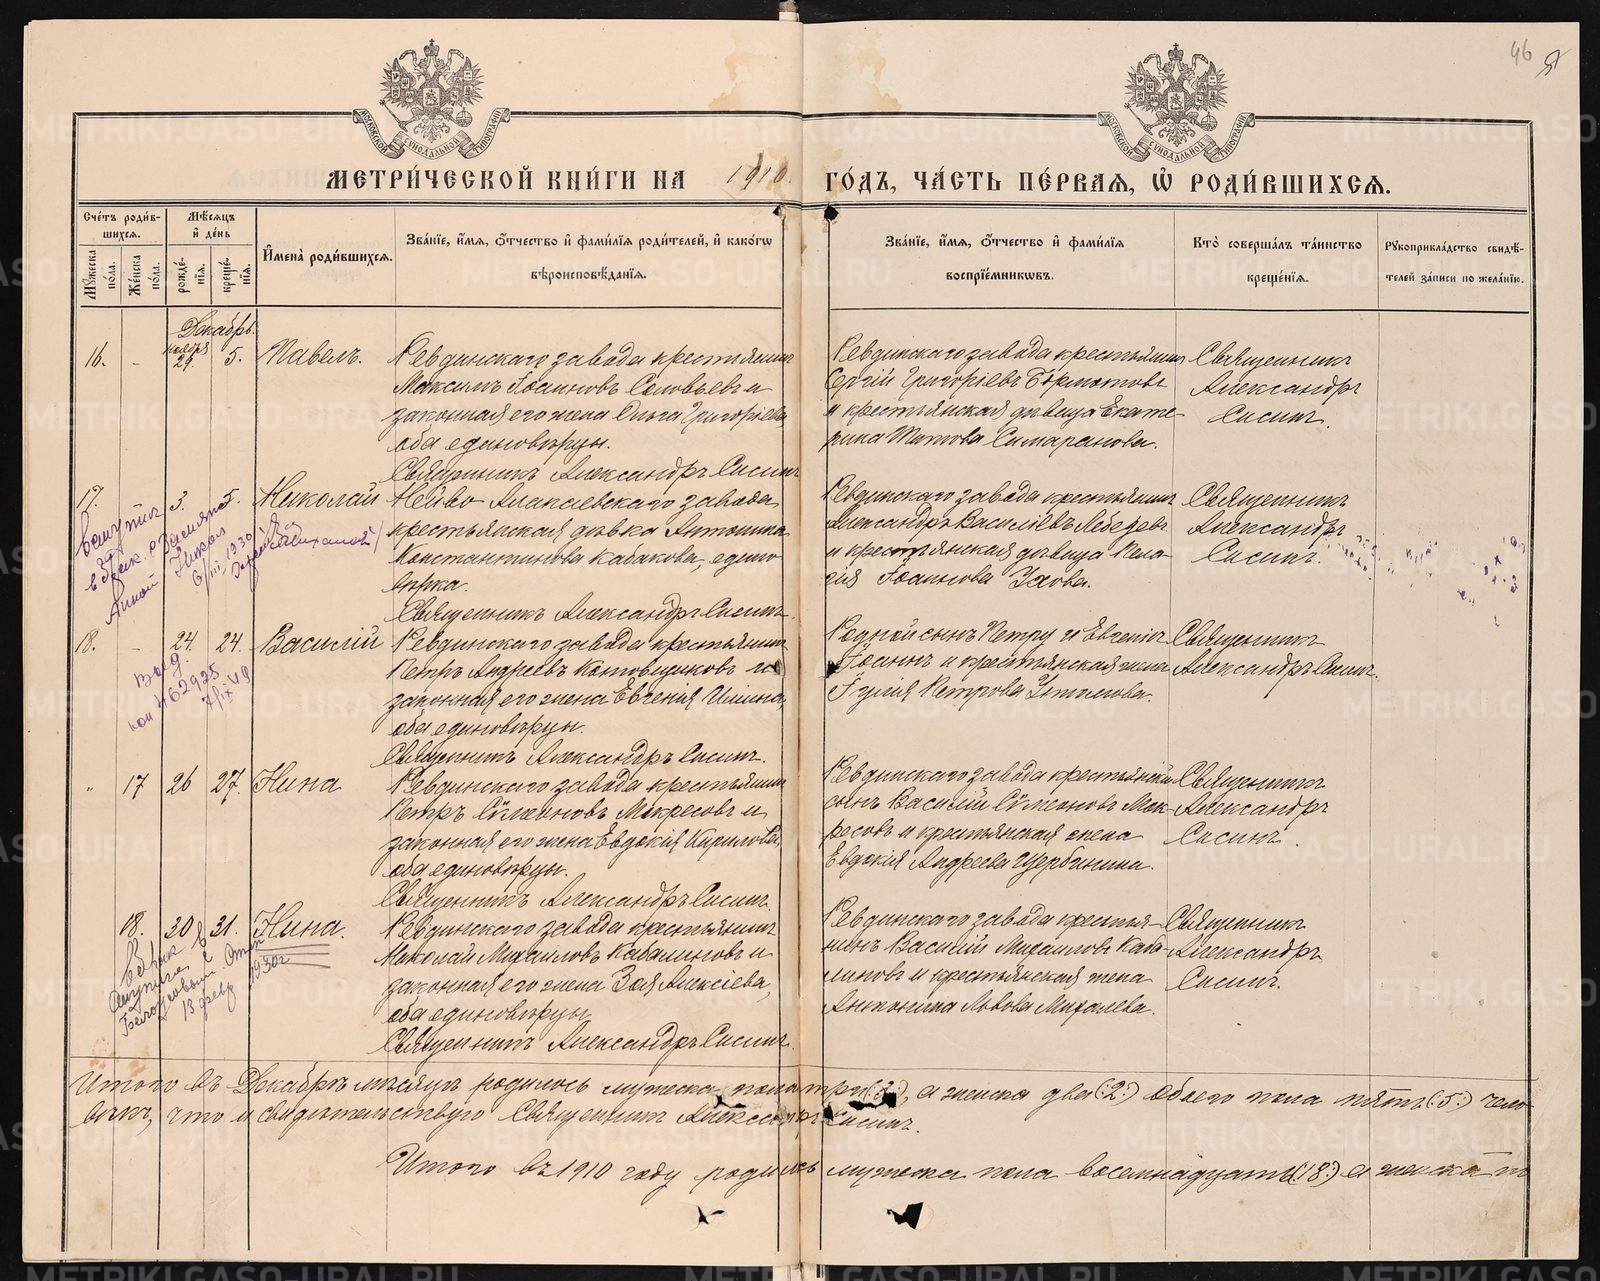 46
МОСКОВСКОЙ СѴНОДАЛЬНОЙ ТИПОГРАФІИ
МОСКОВСКОЙ СѴНОДАЛЬНОЙ ТИПОГРАФІИ
МЕТРИ́ЧЕСКОЙ КНИ́ГИ НА 1910 ГО́ДЪ, ЧА́СТЬ ПЕ́РВАѦ, Ѡ҆ РОДИ́ВШИХСѦ.
Сче́тъ роди́в-
шихсѧ.
Мꙋ́жеска по́ла.
Же́нска по́ла.
Мѣ́сѧцъ и҆ де́нь
рожде́-
нїѧ.
креще́-
нїѧ.
И҆мена̀ роди́вшихсѧ.
Зва́нїе, и҆́мѧ, ѻ҆́тчество и҆ фами́лїѧ роди́телей, и҆ како́гѡ
вѣроисповѣ́данїѧ.
Зва́нїе, и҆́мѧ, ѻ҆́тчество и҆ фами́лїѧ
воспрїе́мникѡвъ.
Кто̀ соверша́лъ та́инство
креще́нїѧ.
Рꙋкоприкла́дство свидѣ́-
телей за́писи по жела́нїю.
Декабрь.
16. - ноября 29. 5. Павелъ.
Ревдинскаго завода крестьянинъ
Максимъ Іоанновъ Соловьевъ и
законная его жена Ольга Григоріева
оба единовѣрцы.
Священникъ Александръ Сисинъ
Ревдинскаго завода крестьянинъ
Сергій Григоріевъ Бормотовъ
и крестьянская дѣвица Екате-
рина Титова Самаранова.
Священникъ
Александръ
Сисинъ.
17. 3. 5. Николай
Нейво Алапаевскаго завода
крестьянская дѣвка Антонина
Константинова Кабакова, едино
вѣрка.
Священникъ Александръ Сисинъ
Ревдинскаго завода крестьянинъ
Александръ Васильевъ Лебедевъ
и крестьянская дѣвица Пела-
гія Іоаннова Ухова.
Священникъ
Александръ
Сисинъ.
вступил
в брак с
Анной
1930
18. - 24. 24. Василій
Ревдинскаго завода крестьянинъ
Петръ Андреевъ Котовщиковъ и
законная его жена Евгенія Ильина,
оба единовѣрцы.
Священникъ Александръ Сисинъ.
Родной сынъ Петру и Евгеніи
Іоаннъ и крестьянская жена
Іулія Петрова
Священникъ
Александръ Сисинъ.
выд.
коп № 62925
„ 17 26 27. Нина
Ревдинскаго завода крестьянинъ
Петръ Сѵмеоновъ Мокресовъ и
законная его жена Евдокія Кирилова,
оба единовѣрцы.
Священникъ Александръ Сисинъ.
Ревдинскаго завода крестьянскій
сынъ Василій Сѵмеоновъ Мок-
ресовъ и крестьянская жена
Евдокія Андреева Щербинина.
Священникъ
Александръ
Сисинъ.
18. 30 31. Нина.
Ревдинскаго завода крестьянинъ
Николай Михаиловъ Кабалиновъ и
законная его жена Зоя Алексіева,
оба единовѣрцы
Священникъ Александръ Сисинъ.
Ревдинскаго завода крестья-
нинъ Василій Михаиловъ Каба-
линовъ и крестьянская жена
Антонина Львова Михалева.
Священникъ
Александръ
Сисинъ.
В брак
вступила в
13 февр 1930г
Итого въ Декабрѣ мѣсяцѣ родилось мужеска пола три (:3:), а женска два (:2:) обоего пола пять (:5:) чело-
вѣкъ, что и свидѣтельствую Священникъ Александръ Сисинъ.
Итого въ 1910 году родилось мужеска пола восемнадцать (18:) а женска п